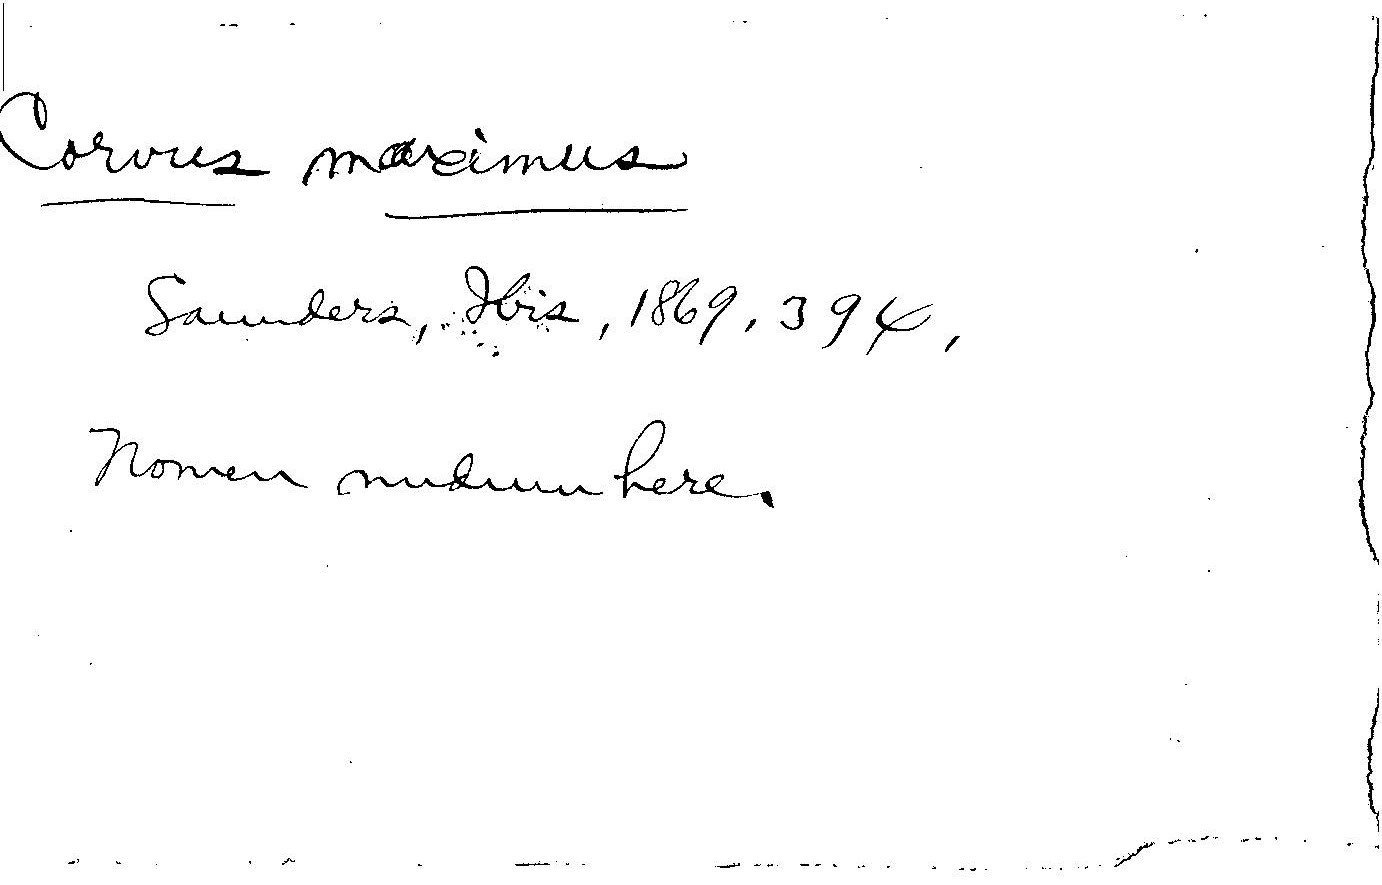 Corvus maximus
Saunders, Ibis, 1869, 394,
Nomen nudum here.